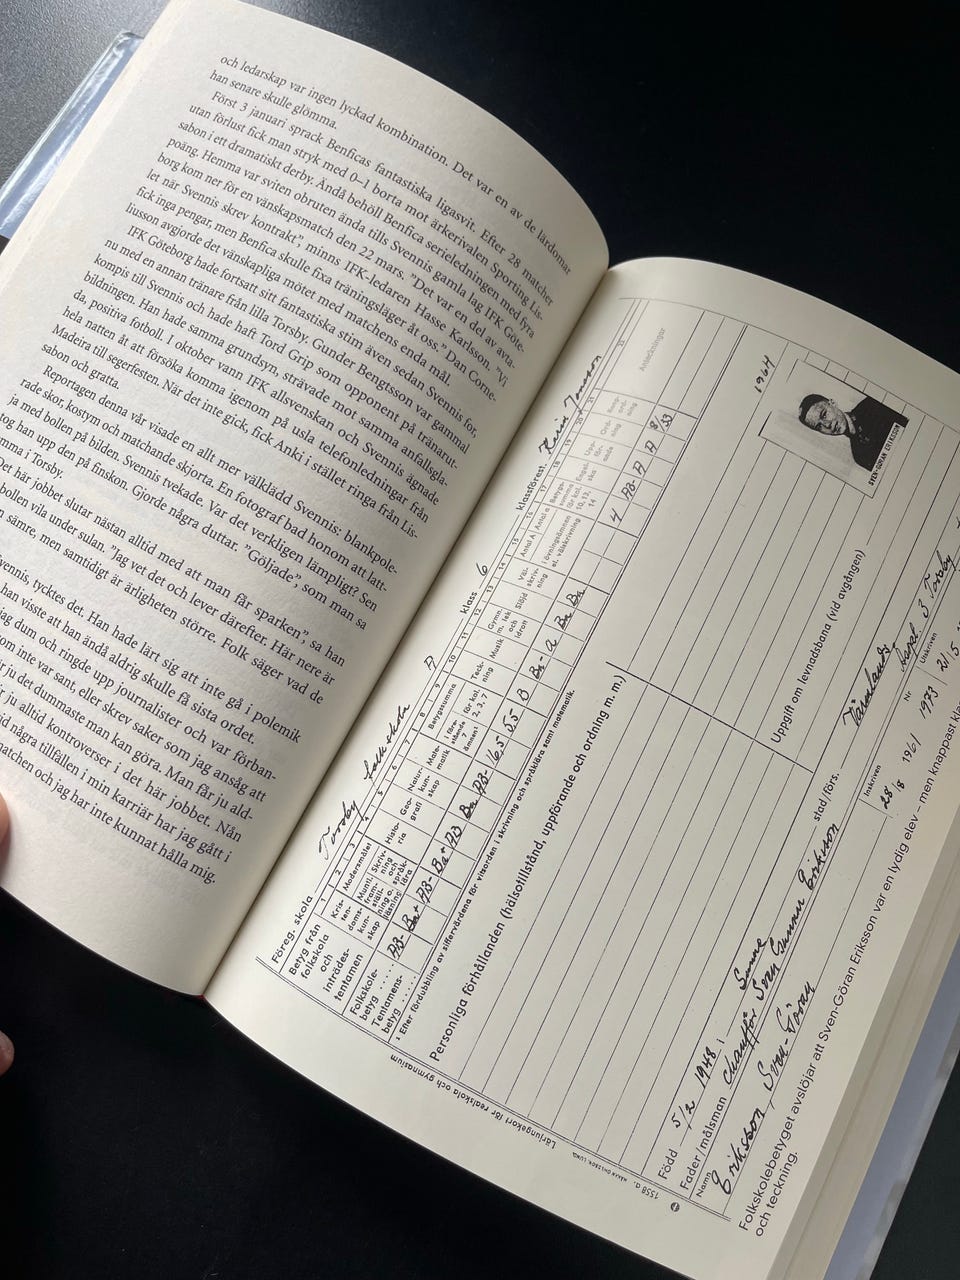 och ledarskap var ingen lyckad kombination. Det var en av de lärdomar
han senare skulle glömma.
Först 3 januari sprack Benficas fantastiska ligasvit. Efter 28 matcher
utan förlust fick man stryk med 0–1 borta mot ärkerivalen Sporting Lis-
sabon i ett dramatiskt derby. Ändå behöll Benfica serieledningen med fyra
poäng. Hemma var sviten obruten ända tills Svennis gamla lag IFK Göte-
borg kom ner för en vänskapsmatch den 22 mars. "Det var en del av avta-
let när Svennis skrev kontrakt", minns IFK-ledaren Hasse Karlsson. "Vi
fick inga pengar, men Benfica skulle fixa träningsläger åt oss." Dan Corne-
liusson avgjorde det vänskapliga mötet med matchens enda mål.
IFK Göteborg hade fortsatt sitt fantastiska stim även sedan Svennis for,
nu med en annan tränare från lilla Torsby. Gunder Bengtsson var gammal
kompis till Svennis och hade haft Tord Grip som opponent på tränarut-
bildningen. Han hade samma grundsyn, strävade mot samma anfallsgla-
da, positiva fotboll. I oktober vann IFK allsvenskan och Svennis ägnade
hela natten åt att försöka komma igenom på usla telefonledningar från
Madeira till segerfesten. När det inte gick, fick Anki i stället ringa från Lis-
sabon och gratta.
Reportagen denna vår visade en allt mer välklädd Svennis: blankpole-
rade skor, kostym och matchande skjorta. En fotograf bad honom att latt-
ja med bollen på bilden. Svennis tvekade. Var det verkligen lämpligt? Sen
tog han upp den på finskon. Gjorde några duttar. "Göljade", som man sa
mma i Torsby.
Det här jobbet slutar nästan alltid med att man får sparken", sa han
bollen vila under sulan. "Jag vet det och lever därefter. Här nere är
n sämre, men samtidigt är ärligheten större. Folk säger vad de
vennis, tycktes det. Han hade lärt sig att inte gå i polemik
han visste att han ändå aldrig skulle få sista ordet.
jag dum och ringde upp journalister och var förban-
om inte var sant, eller skrev saker som jag ansåg att
r ju det dummaste man kan göra. Man får ju ald-
r ju alltid kontroverser i det här jobbet. Nån
d några tillfällen i min karriär har jag gått i
matchen och jag har inte kunnat hålla mig.
Föreg. skola Torsby folkskola A klass 6 klassförest.
Betyg från folkskola och inträdes-tentamen
1 2 3 4 5 6 7 8 9 10 11 12 13 14 15
Kris-tendoms-kun-skap
Modersmålet
Muntl. fram-ställ-ning o. läsning
Skriv-ning och språk-lära
Histo-ria
Geo-grafi
Natur-kun-skap
Mate-matik
Betygssumma i före-stående ämnen för kol. 2, 3, 7
Teck-ning
Musik
Gymn. m. lek och idrott
Slöjd
Väl-skriv-ning
Antal A i övningsämnen el. välskrivning
Betygs-summa för kol. 10, 13, 14
Engel-ska
Upp-fö-rande
Ord-ning
Anteckningar
Folkskole-betyg AB- Ba+ AB- Ba+ AB Ba AB- 16,5 5,5 B Ba- A Ba Ba 4 AB- A A
Tentamens-betyg
¹ Efter fördubbling av siffervärdena för vitsorden i skrivning och språklära samt matematik.
Personliga förhållanden (hälsotillstånd, uppförande och ordning m. m.)
Uppgift om levnadsbana (vid avgången)
1964
SVEN-GÖRAN ERIKSSON
Född 5/2 1948 i Sunne stad/förs. Värmlands
Fader/målsman Chaufför Sven Gunnar Eriksson
3 Torsby
Namn Eriksson, Sven-Göran
Inskriven 28/8 1961
Nr 1973
Utskriven 21/5
Lärjungekort för realskola och gymnasium
1558 a. HÅKAN OHLSSON, LUND
Folkskolebetyget avslöjar att Sven-Göran Eriksson var en lydig elev – men knappast
och teckning.